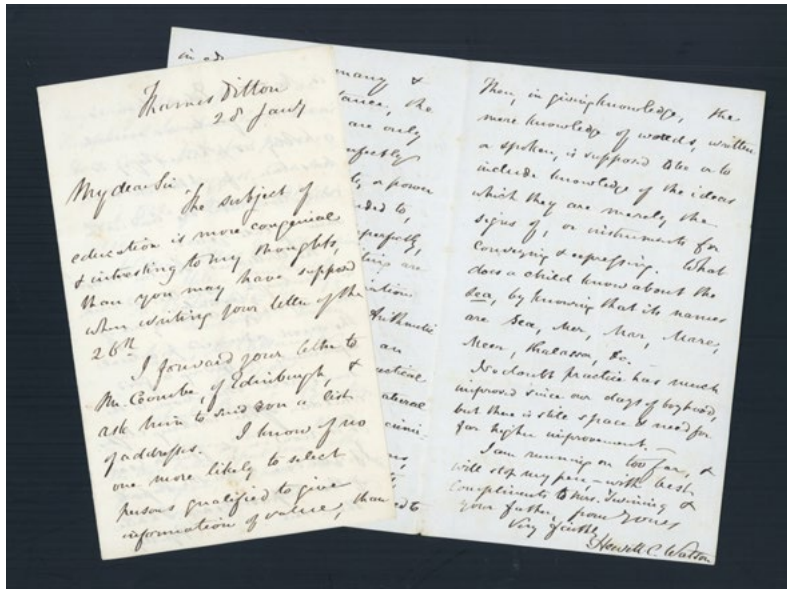 Thames Ditton
28 Jany
My dear Sir
The subject of
education is more congenial
& interesting to my thoughts,
than you may have supposed
when writing your letter of the
26th
I forward your letter to
Mr. Coombe, of Edinburgh, &
ask him to send you a list
of addresses. I know of no
one more likely to select
persons qualified to give
information of value, than
many &
tance, the
are only
fectly
to, a power
ded to,
perfectly,
ting are
Arithmetic
an
ctical
atural
Then, in giving knowledge, the
mere knowledge of words, written
or spoken, is supposed to be or to
include knowledge of the ideas
which they are merely the
signs of, or instruments for
conveying & expressing. What
does a child know about the
sea, by knowing that its names
are Sea, Mer, Mar, Mare,
Meer, Thalassa, &c.
No doubt practice has much
improved since our days of boyhood,
but there is still space & need for
far higher improvement.
I am running on too far, &
will stop my pen – with best
compliments to Mrs. Twining &
your father, from yours
Very faithfy
Hewett C. Watson